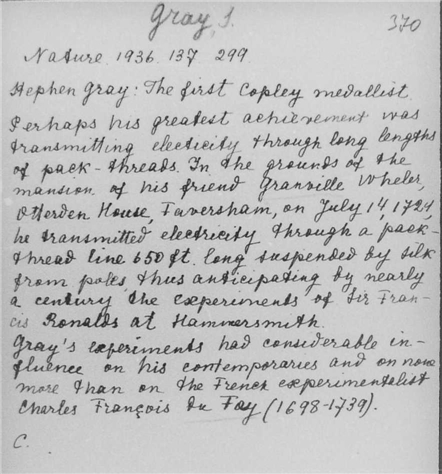 Gray, S.
370
Nature 1936. 137. 299.
Stephen Gray: The first Copley medallist.
Perhaps his greatest achievement was
transmitting electicity through long lengths
of pack-threads. In the grounds of the
mansion of his friend Granville Wheler,
Otterden House, Faversham, on July 14, 1729,
he transmitted electricity through a pack-
thread line 650 ft. long suspended by silk
from poles thus anticipating by nearly
a century the experiments of Sir Fran-
cis Ronalds at Hammersmith.
Gray's experiments had considerable in-
fluence on his contemporaries and on none
more than on the French experimentalist
Charles François du Fay (1698-1739).
C.